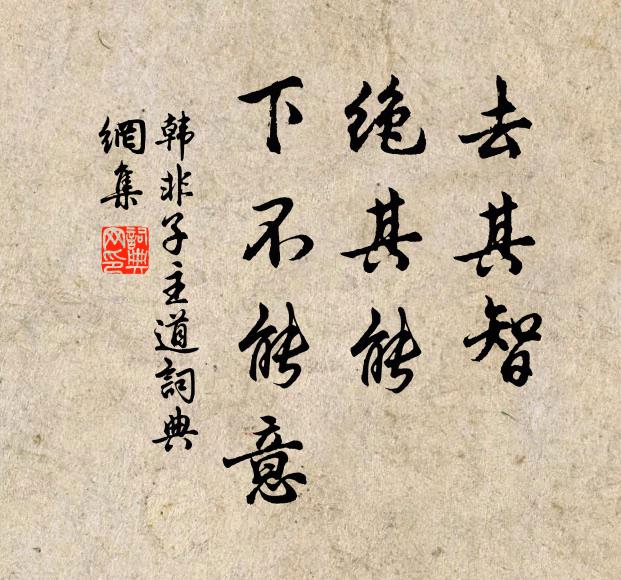 去其智
绝其能
下不能意
韩非子主道詞典
網集
詞典
网印